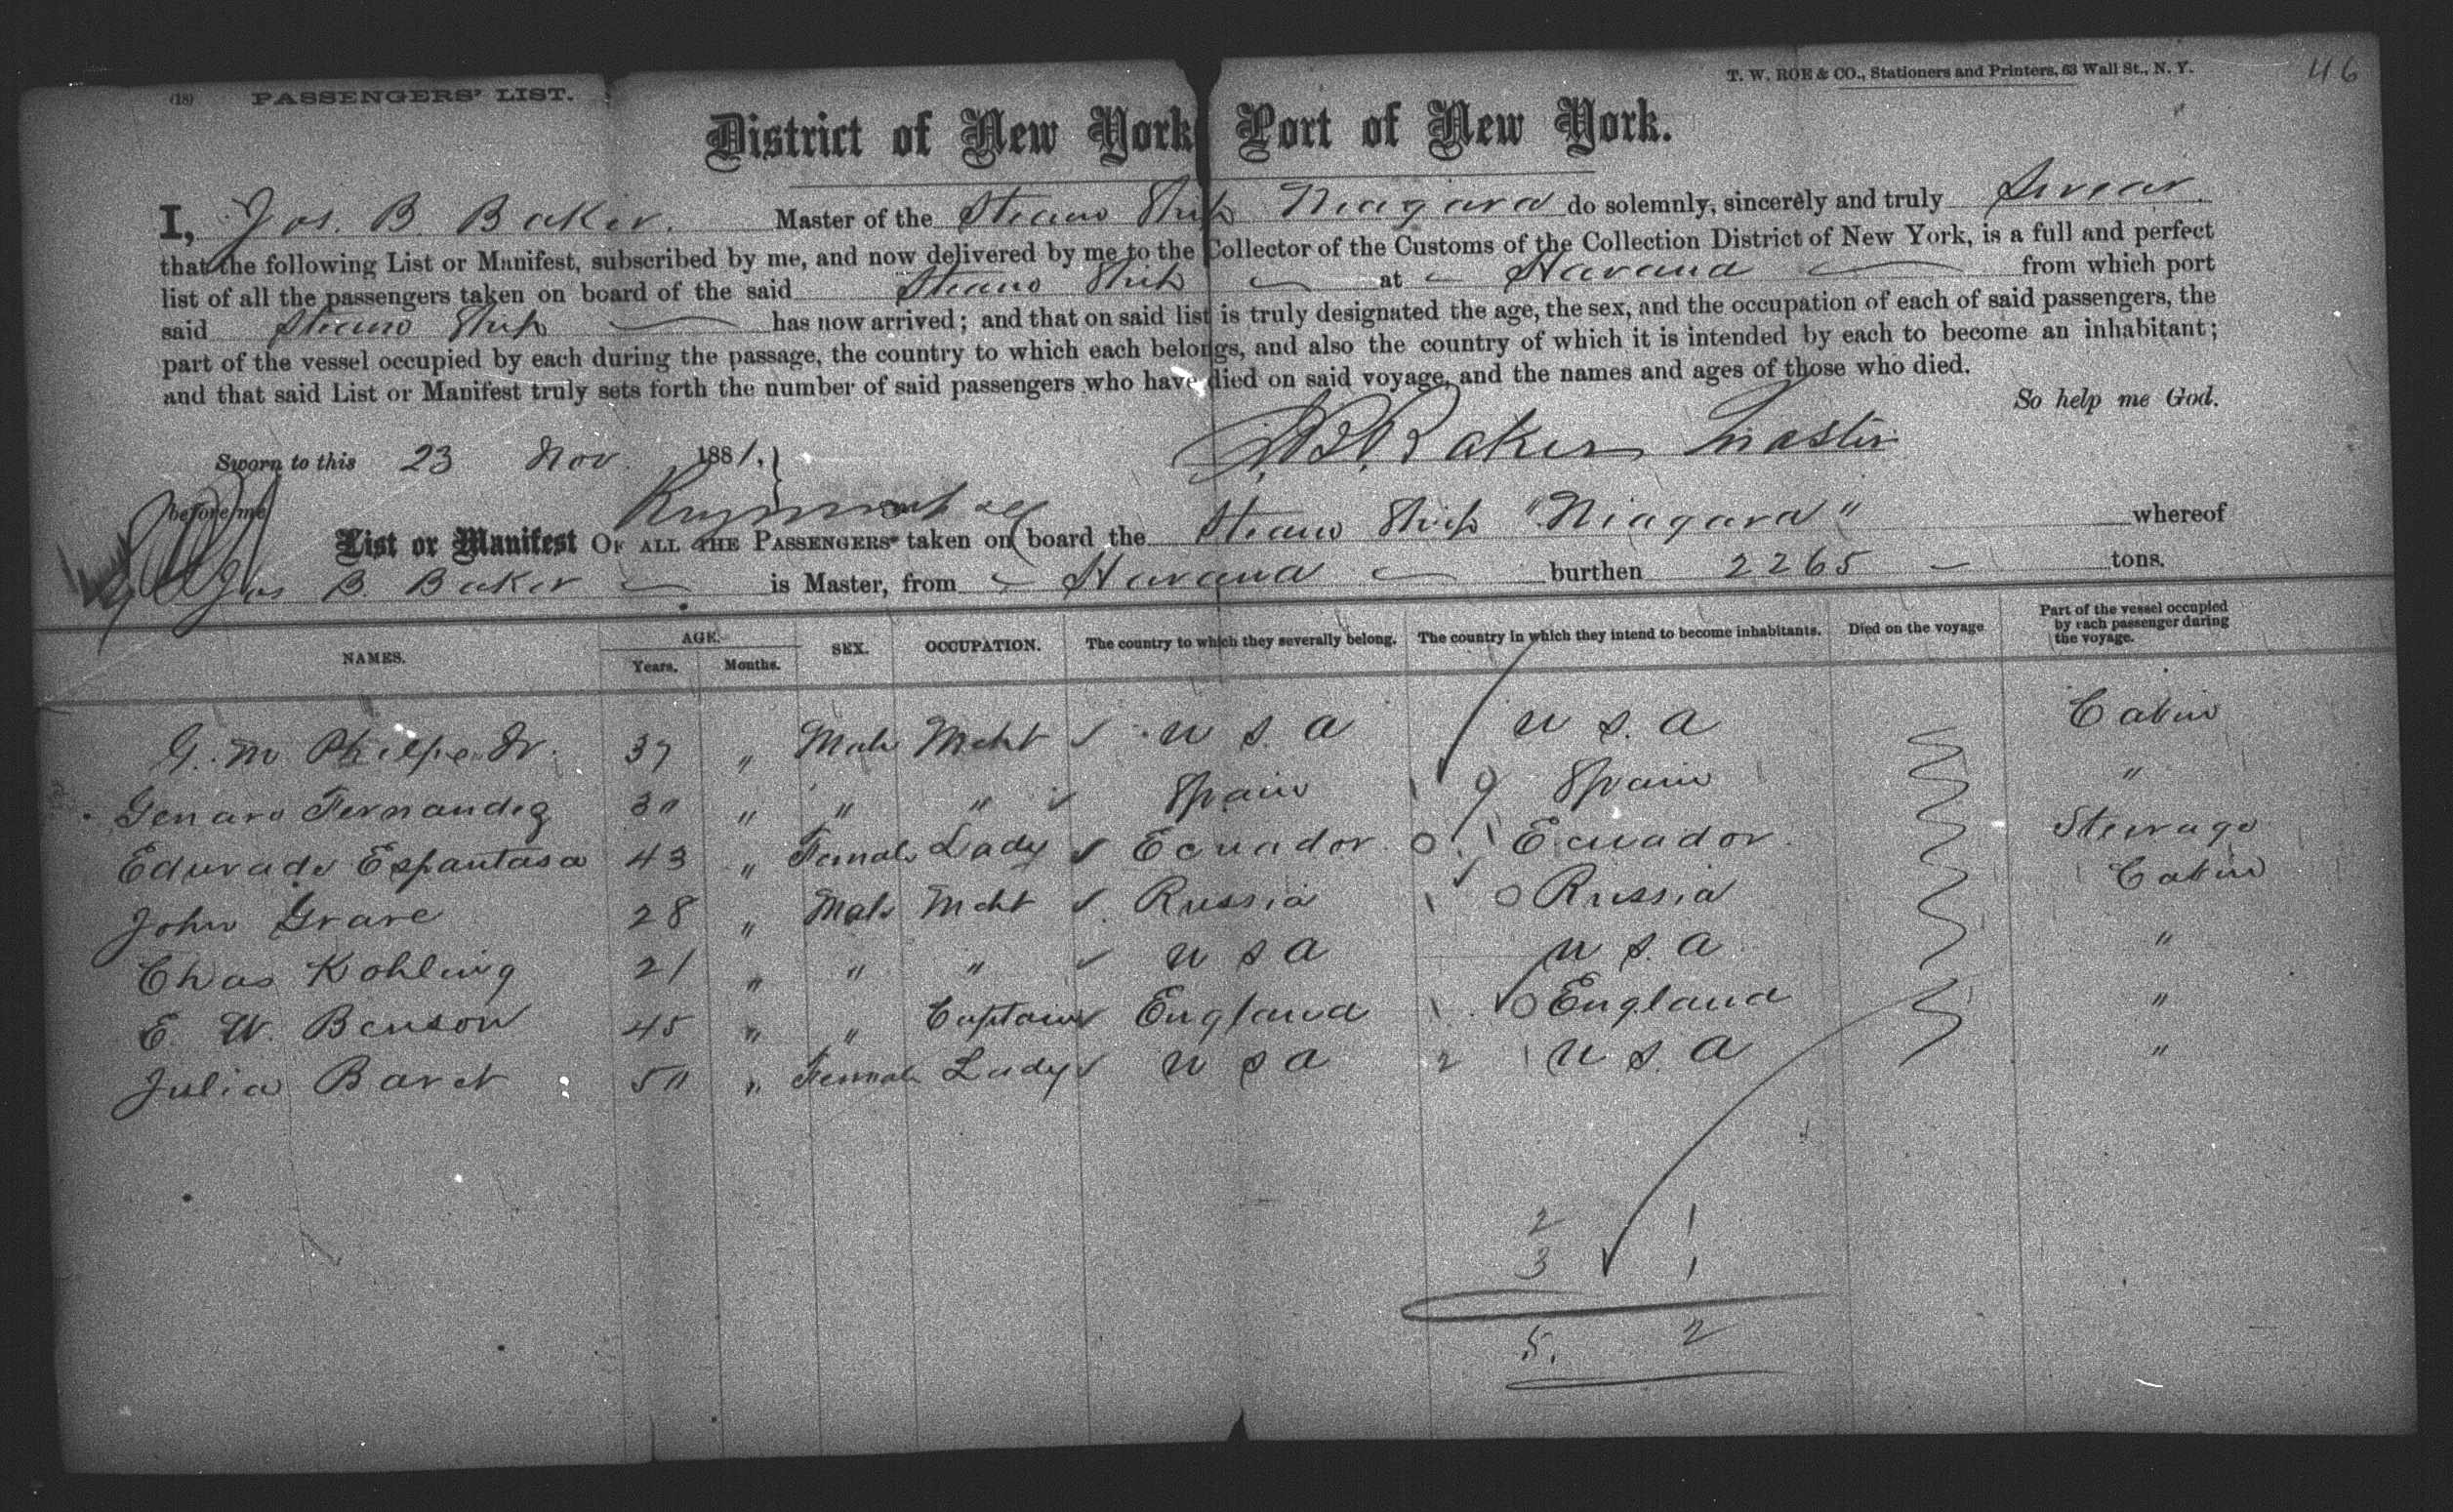 46
T. W. ROE & CO., Stationers and Printers, 63 Wall St., N. Y.
(18) PASSENGERS' LIST.
District of New York Port of New York.
I, Jos. B. Baker. Master of the Steam Ship Niagara do solemnly, sincerely and truly Swear
that the following List or Manifest, subscribed by me, and now delivered by me to the Collector of the Customs of the Collection District of New York, is a full and perfect
list of all the passengers taken on board of the said Steam Ship at Havana from which port
said Steam Ship has now arrived; and that on said list is truly designated the age, the sex, and the occupation of each of said passengers, the
part of the vessel occupied by each during the passage, the country to which each belongs, and also the country of which it is intended by each to become an inhabitant;
and that said List or Manifest truly sets forth the number of said passengers who have died on said voyage, and the names and ages of those who died.
So help me God.
Sworn to this 23 Nov. 1881. J. B. Baker Master
before me
List or Manifest OF ALL THE PASSENGERS taken on board the Steam Ship "Niagara" whereof
Jos B. Baker is Master, from Havana burthen 2265 tons.
NAMES. AGE. Years. Months. SEX. OCCUPATION. The country to which they severally belong. The country in which they intend to become inhabitants. Died on the voyage Part of the vessel occupied by each passenger during the voyage.
G. M Phelps Jr. 37 " Male Mcht U S. A U S. A Cabin
Genaro Fernandez 30 " " " Spain Spain "
Edurado Espantasa 43 " Female Lady Ecuador Ecuador Steerage
John Grave 28 " Male Mcht Russia Russia Cabin
Chas Kohling 21 " " " U S A U S. A "
E. W. Benson 45 " " Captain England England "
Julia Baret 50 " Female Lady U S A U S. A "
2 1
3 1
5. 2